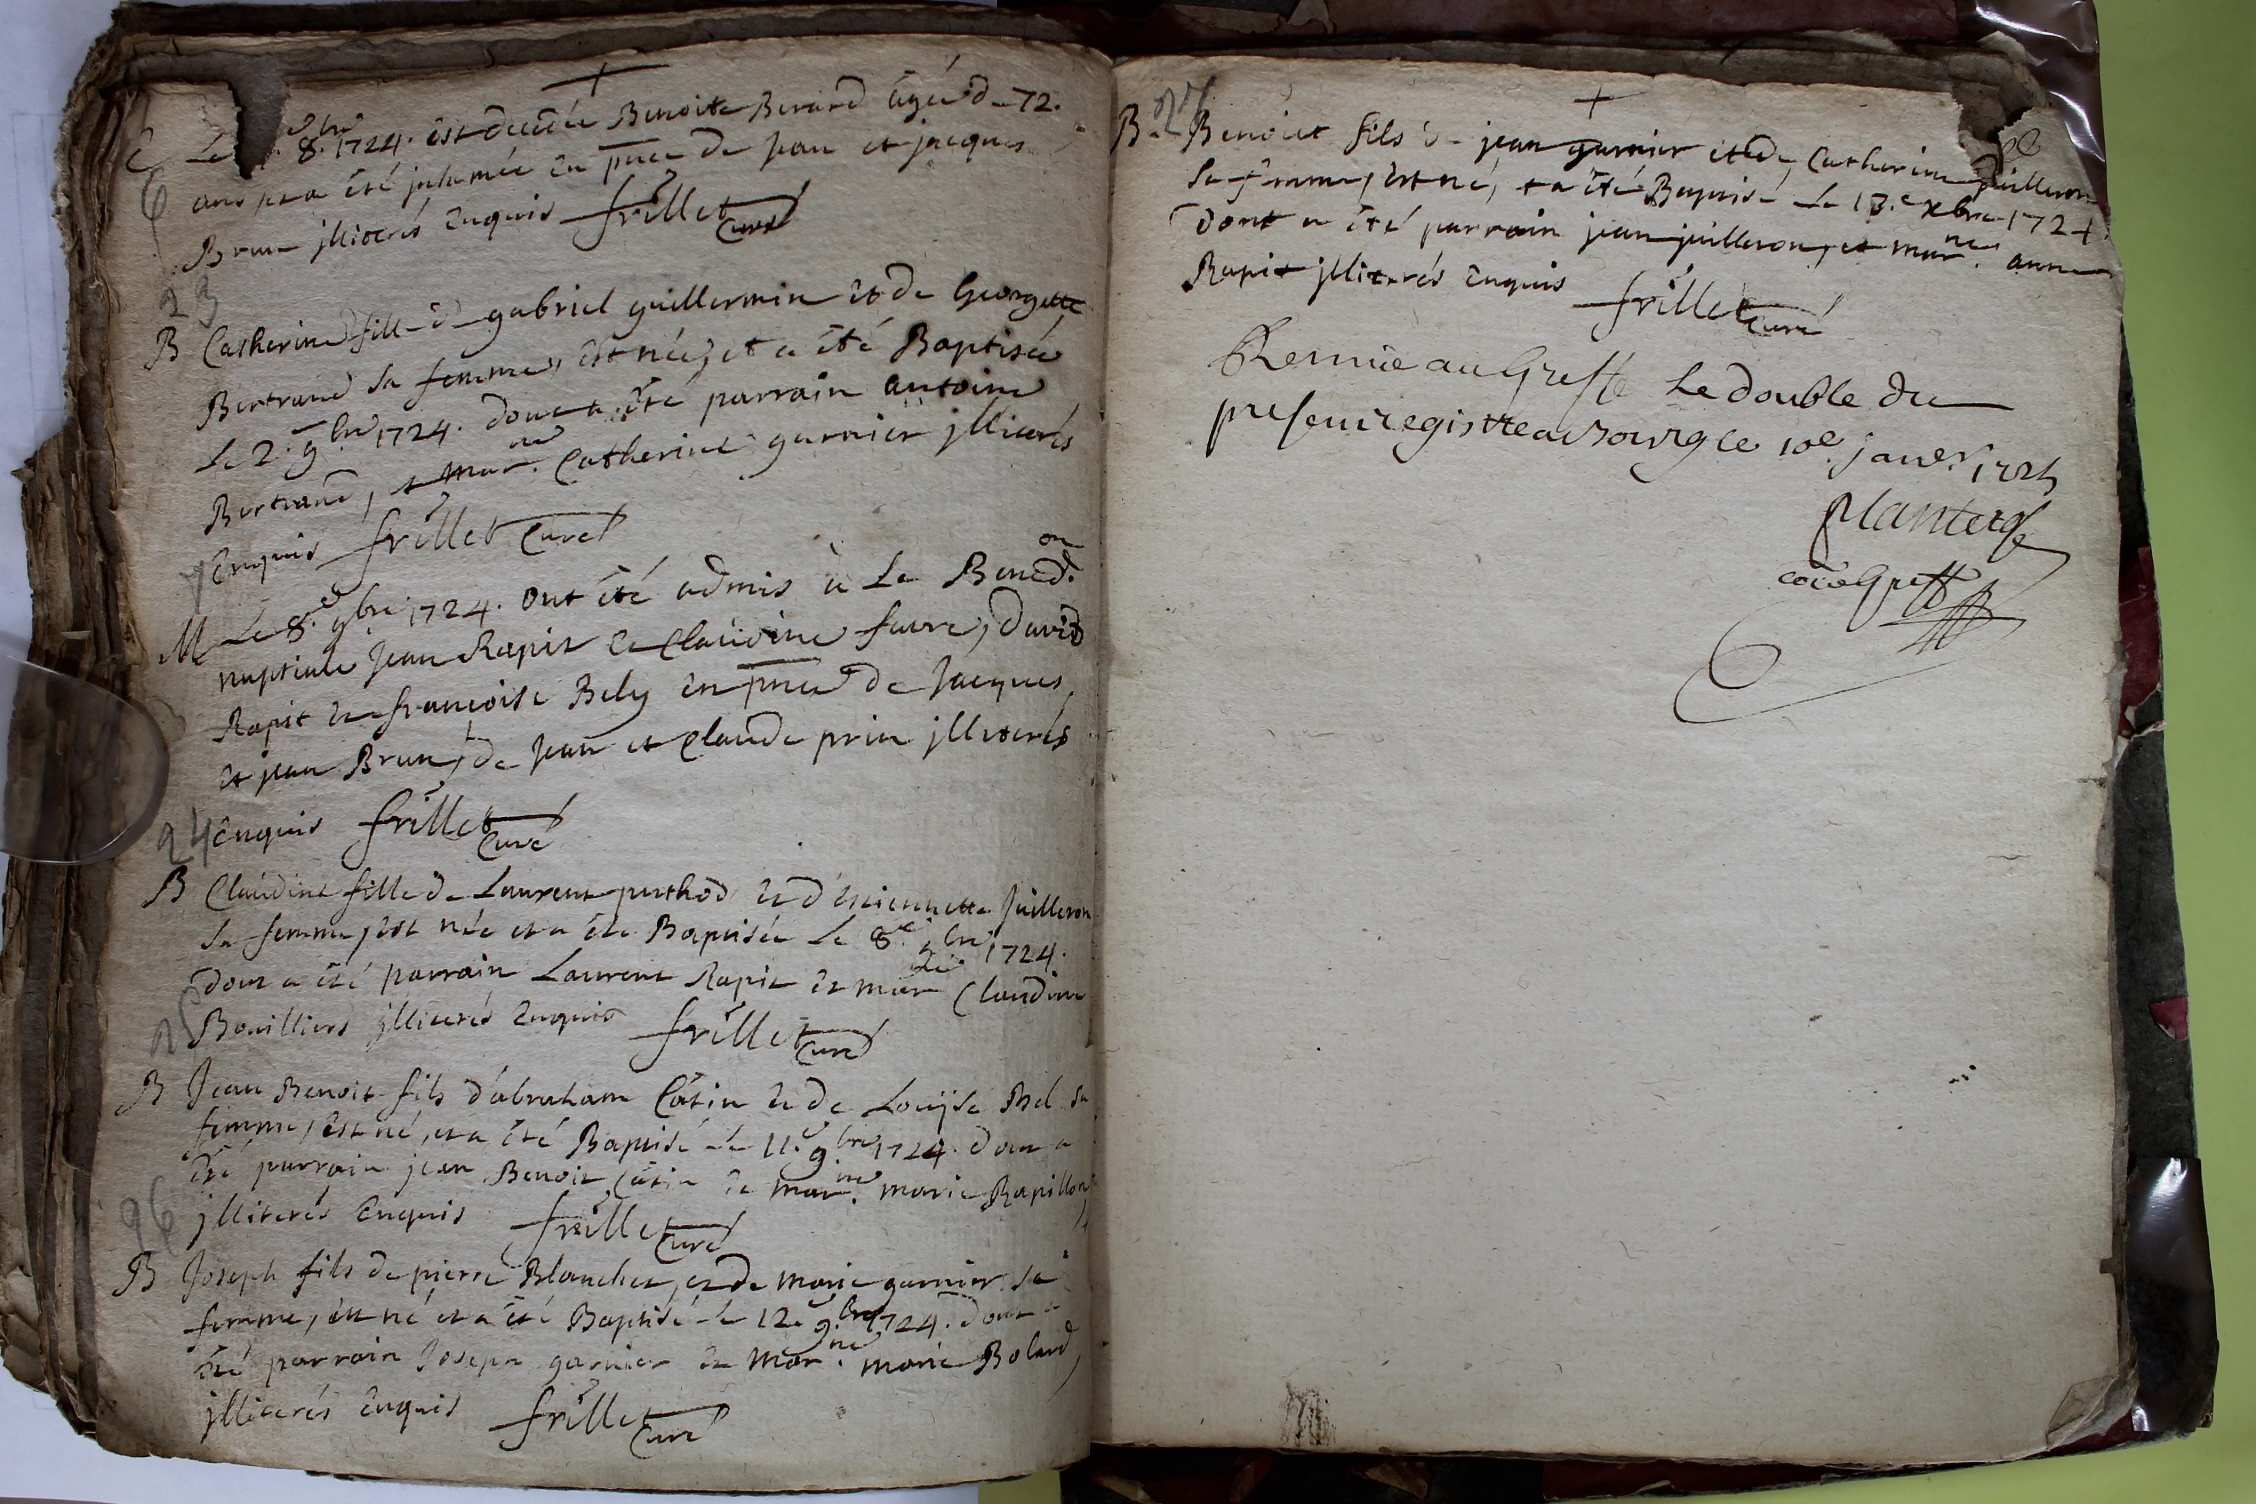 Le 8.bre 1724. est decedée Benoite Berard âgée d 72.
ans, et a été jnhumée en pnce de Jean et jacques
Brun jlliterés Enquis frillet Curé
23
B Catherine fille d gabriel guillermin et de Georgette
Bertrand sa femme, est née, et a été Baptisée
Le 2. 9.bre 1724. dont a été parrain antoine
Bertrand, et mar.ne Catherine garnier jlliterés
Enquis frillet Curé
7
M Le 8.e 9bre 1724. ont été admis a La Bened.on
nuptiale Jean Rapit et Claudine favre, David
Rapit et françoise Bely en pnce de Jacques
et jean Brun, de Jean et Claude prin jlliterés
Enquis frillet Curé
24
B Claudine fille de Laurent puthod et d'Etiennette Juilleron
sa femme, est née et a été Baptisée Le 8.e 9bre 1724.
dont a été parrain Laurent Rapit et mar.ne Claudine
Bouilliers jlliterés Enquis frillet Curé
25
B Jean Benoit fils d'abraham Catin et de Louyse Bel sa
femme, est né, et a été Baptisé Le 11.e 9bre 1724. dont a
été parrain jean Benoit Catin et mar.ne marie Rapillon,
jlliterés Enquis frillet Curé
26
B Joseph fils de pierre Blanchet, et de marie garnier sa
femme, est né et a été Baptisé Le 12.e 9.bre 1724. dont a
été parrain Joseph garnier et mar.ne marie Boland,
jlliterés Enquis frillet Curé
B. 27 Benoist fils d jean garnier et de Catherine Juilleron
sa femme, est né, et a été Baptisé Le 13.e xbre 1724.
dont a été parrain jean juilleron, et mar.ne anne
Rapit jlliterés Enquis frillet Curé
Remise au Greffe Le double du
present registre a Bourg ce 10e. janer. 1725